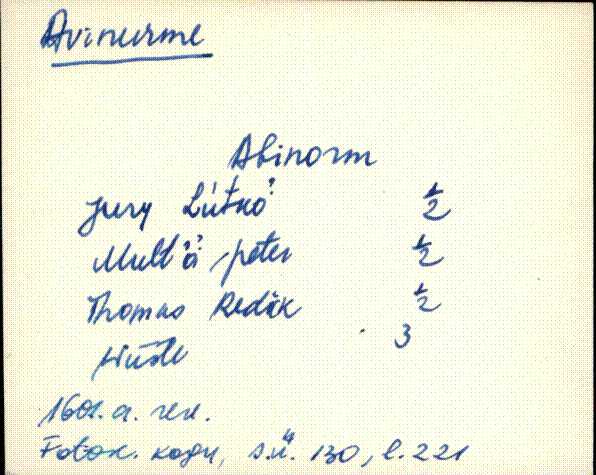 Avinurme
Abinorm
Jury Lútkó 1/2
Mull'ä peter 1/2
Thomas Redik 1/2
Wüste 3
1601. a. rev.
Fotok. kogu, s.ü. 130, l. 221